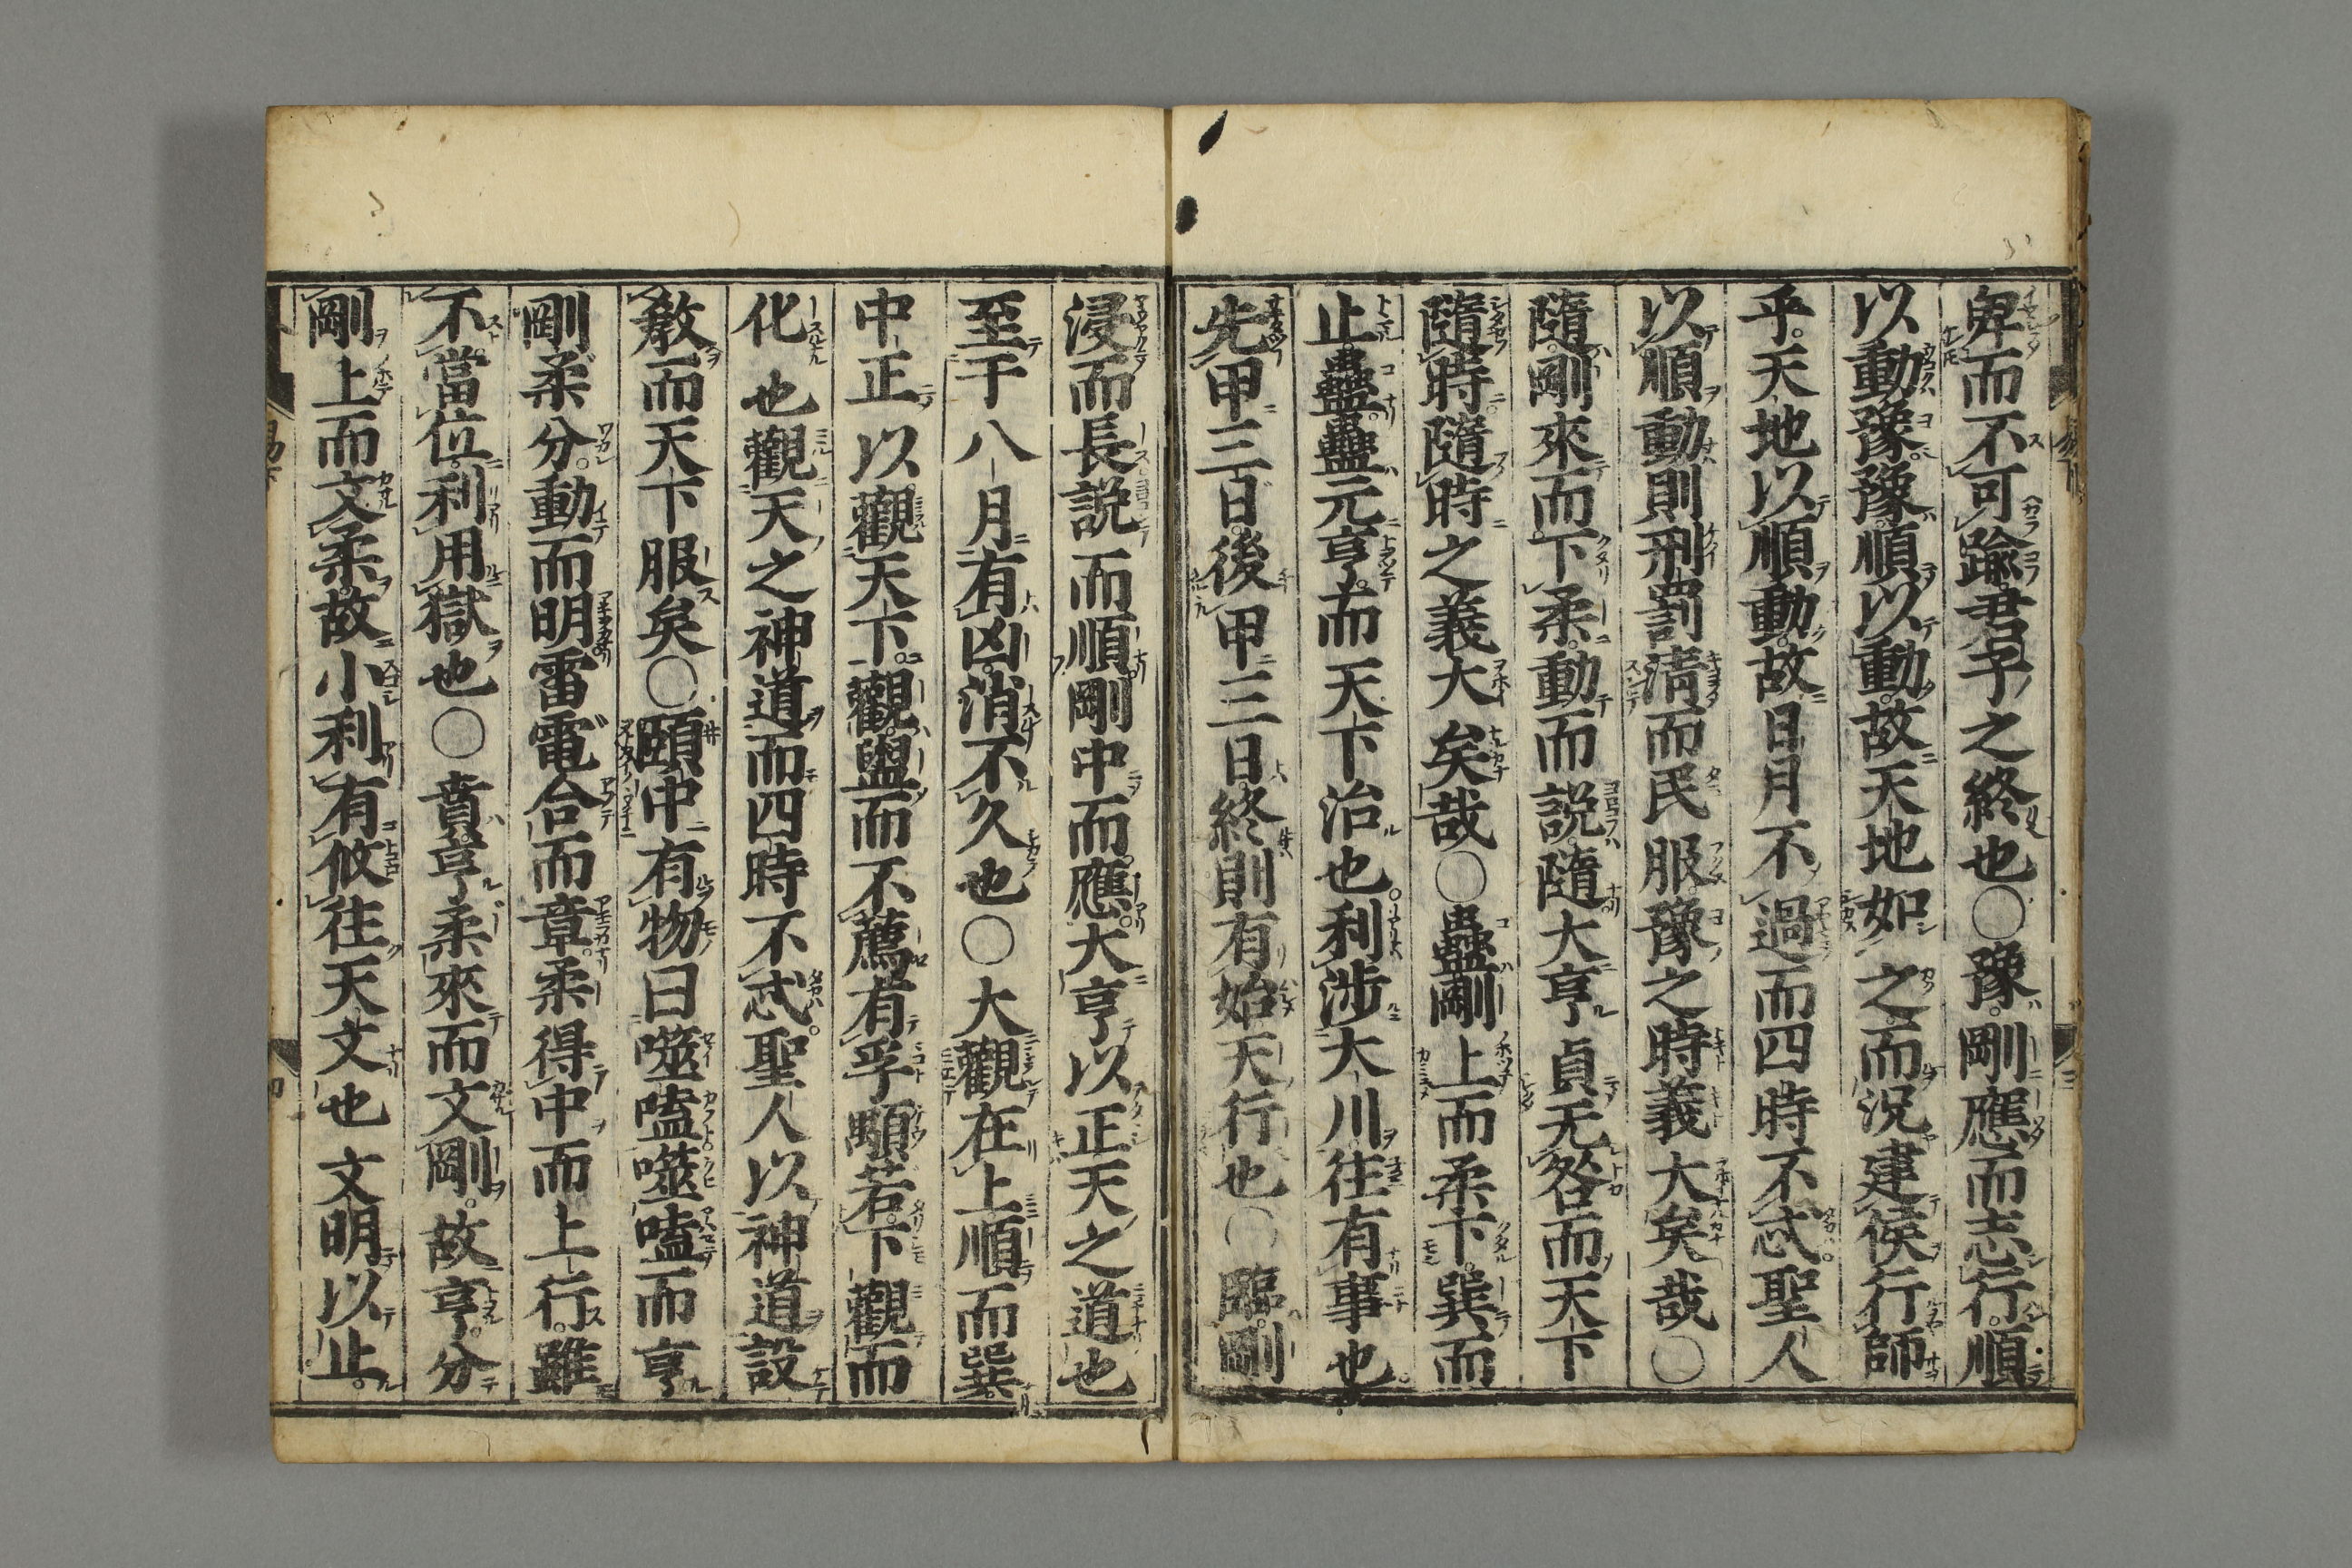 卑而不可踰君子之終也○豫剛應而志行順
以動豫豫順以動故天地如之而況建侯行師
乎天地以順動故日月不過而四時不忒聖人
以順動則刑罰淸而民服豫之時義大矣哉○
隨剛來而下柔動而説隨大亨貞无咎而天下
隨時隨時之義大矣哉○蠱剛上而柔下巽而
止蠱蠱元亨而天下治也利涉大川往有事也
先甲三日後甲三日終則有始天行也○臨剛
浸而長説而順剛中而應大亨以正天之道也
至于八月有凶消不久也○大觀在上順而巽
中正以觀天下觀盥而不薦有孚顒若下觀而
化也觀天之神道而四時不忒聖人以神道設
敎而天下服矣○頤中有物曰噬嗑噬嗑而亨
剛柔分動而明雷電合而章柔得中而上行雖
不當位利用獄也○賁亨柔來而文剛故亨分
剛上而文柔故小利有攸往天文也文明以止